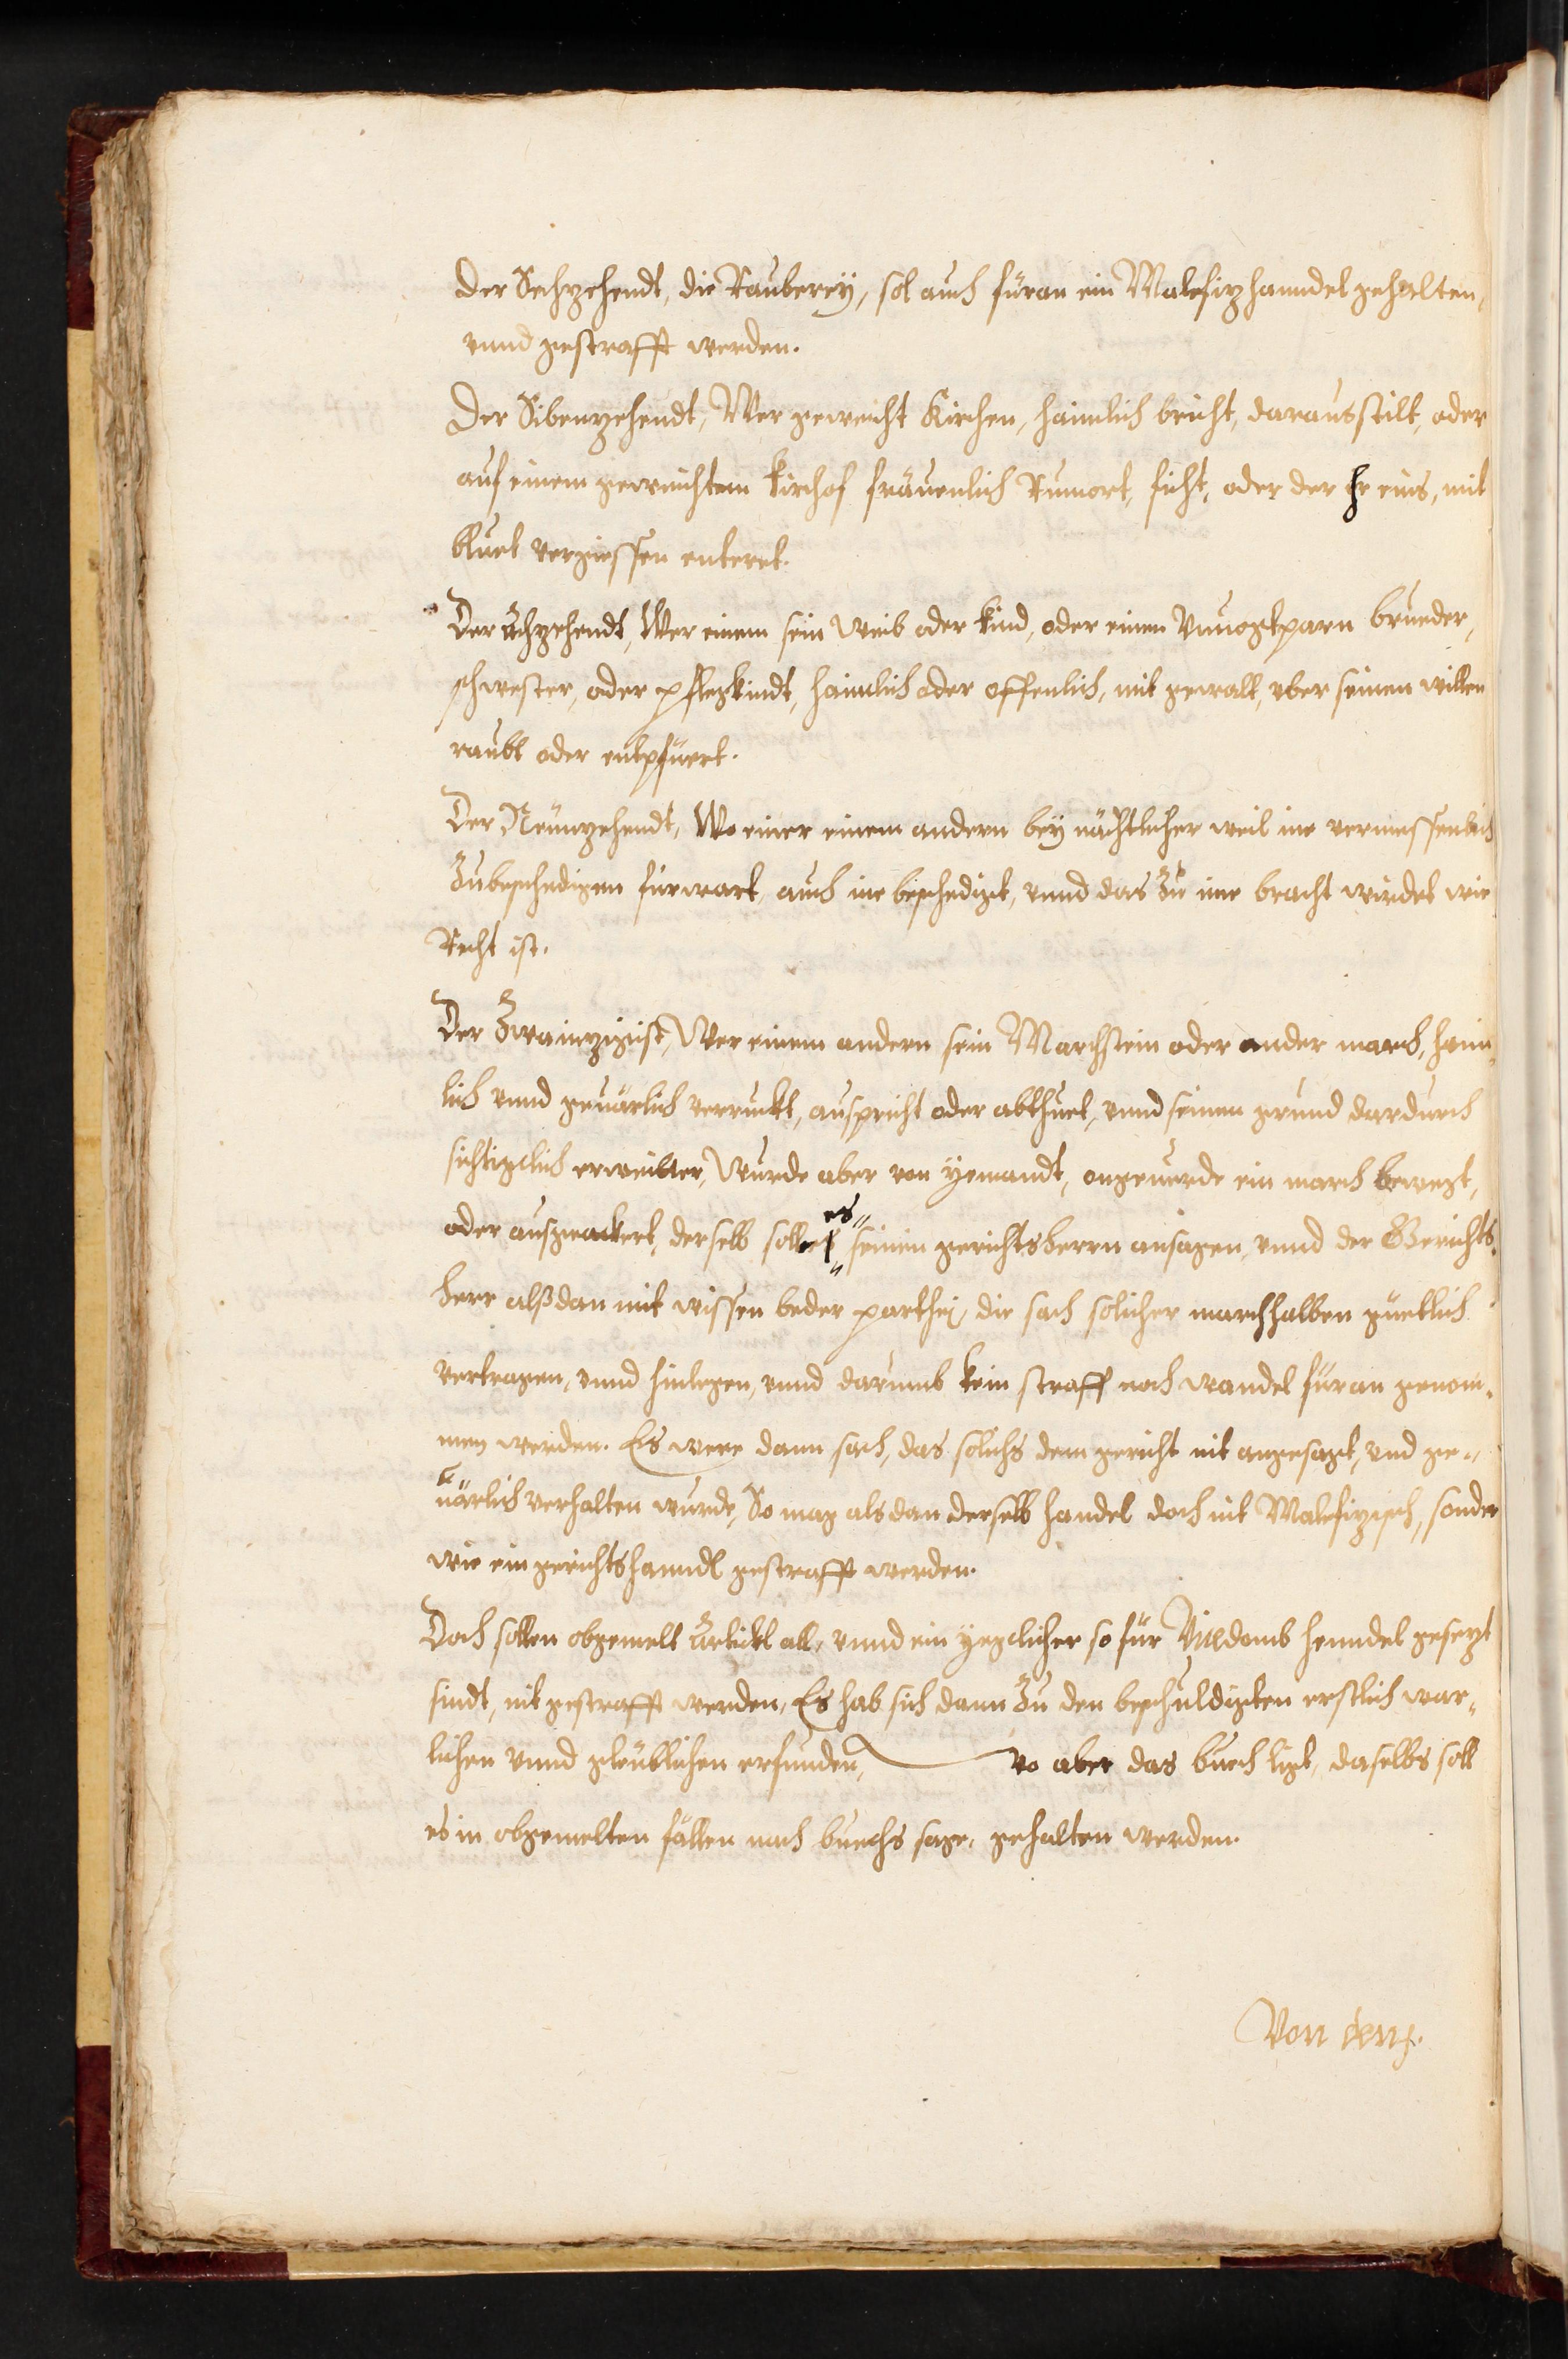 Der Sechzehendt, die Rauberey, sol auch füran ein Malefizhanndel gehalten,
vnnd gestrafft werden.
Der Sibenzehendt, Wer geweicht Kirchen, haimlich bricht, darausstilt, oder
auf einem geweichtem kirchof fräuenlich Rumort, ficht, oder der Er eins, mit
bluet vergiessen enteret.
Der Achzehendt, Wer einem sein Weib oder kind, oder einen Vnuogtparn brueder,
schwester, oder pflegkindt, haimlich oder offenlich, mit gewalt, vber seinen willen
raubt oder entpfuert.
Der Neunzehendt, Wo einer einem andern bey nächtlicher weil ine vermessenlich
Zubeschedigen fürwart, auch ine beschedigt, vnnd das Zu ime bracht wirdet wie
Recht ist.
Der Zwainzigist, Wer einem andern sein Marchstein oder ander march, haim-
lich vnnd geuärlich verruckt, auspricht oder abthuet, vnnd seinen grund dardurch
sichtigclich erweitter, Wurde aber von yemandt, ongeuerde ein march bewegt,
oder ausgeackert, derselb solle es seinem gerichtsherrn ansagen, vnnd der Gerichts-
herr alßdan mit wissen beder parthei, die sach solicher marchhalben güetlich
vertragen, vnnd hinlegen, vnnd darumb kein straff noch wandel füran genom-
men werden. Es were dann sach, das solichs dem gericht nit angesagt, vnd ge-
uärlich verhalten wurde, So mag alsdan derselb handel doch nit Malefizisch, sonder
wie ein gerichtshanndl gestrafft werden.
Doch sollen obgemelt Artickl all, vnnd ein yegclicher so für Vitzdomb henndel gesezt
sindt, nit gestrafft werden, Es hab sich dann Zu den beschuldigten erstlich war-
lichen vnnd gleublichen erfunden, wo aber das buech ligt, daselbs soll
es in obgemelten fällen nach buechs sage, gehalten werden.
Von den